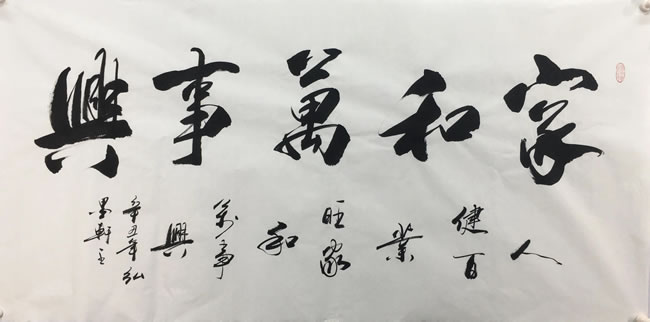 家和萬事興
人
健百
業
旺家
和
萬事
興
辛丑年弘
墨軒主